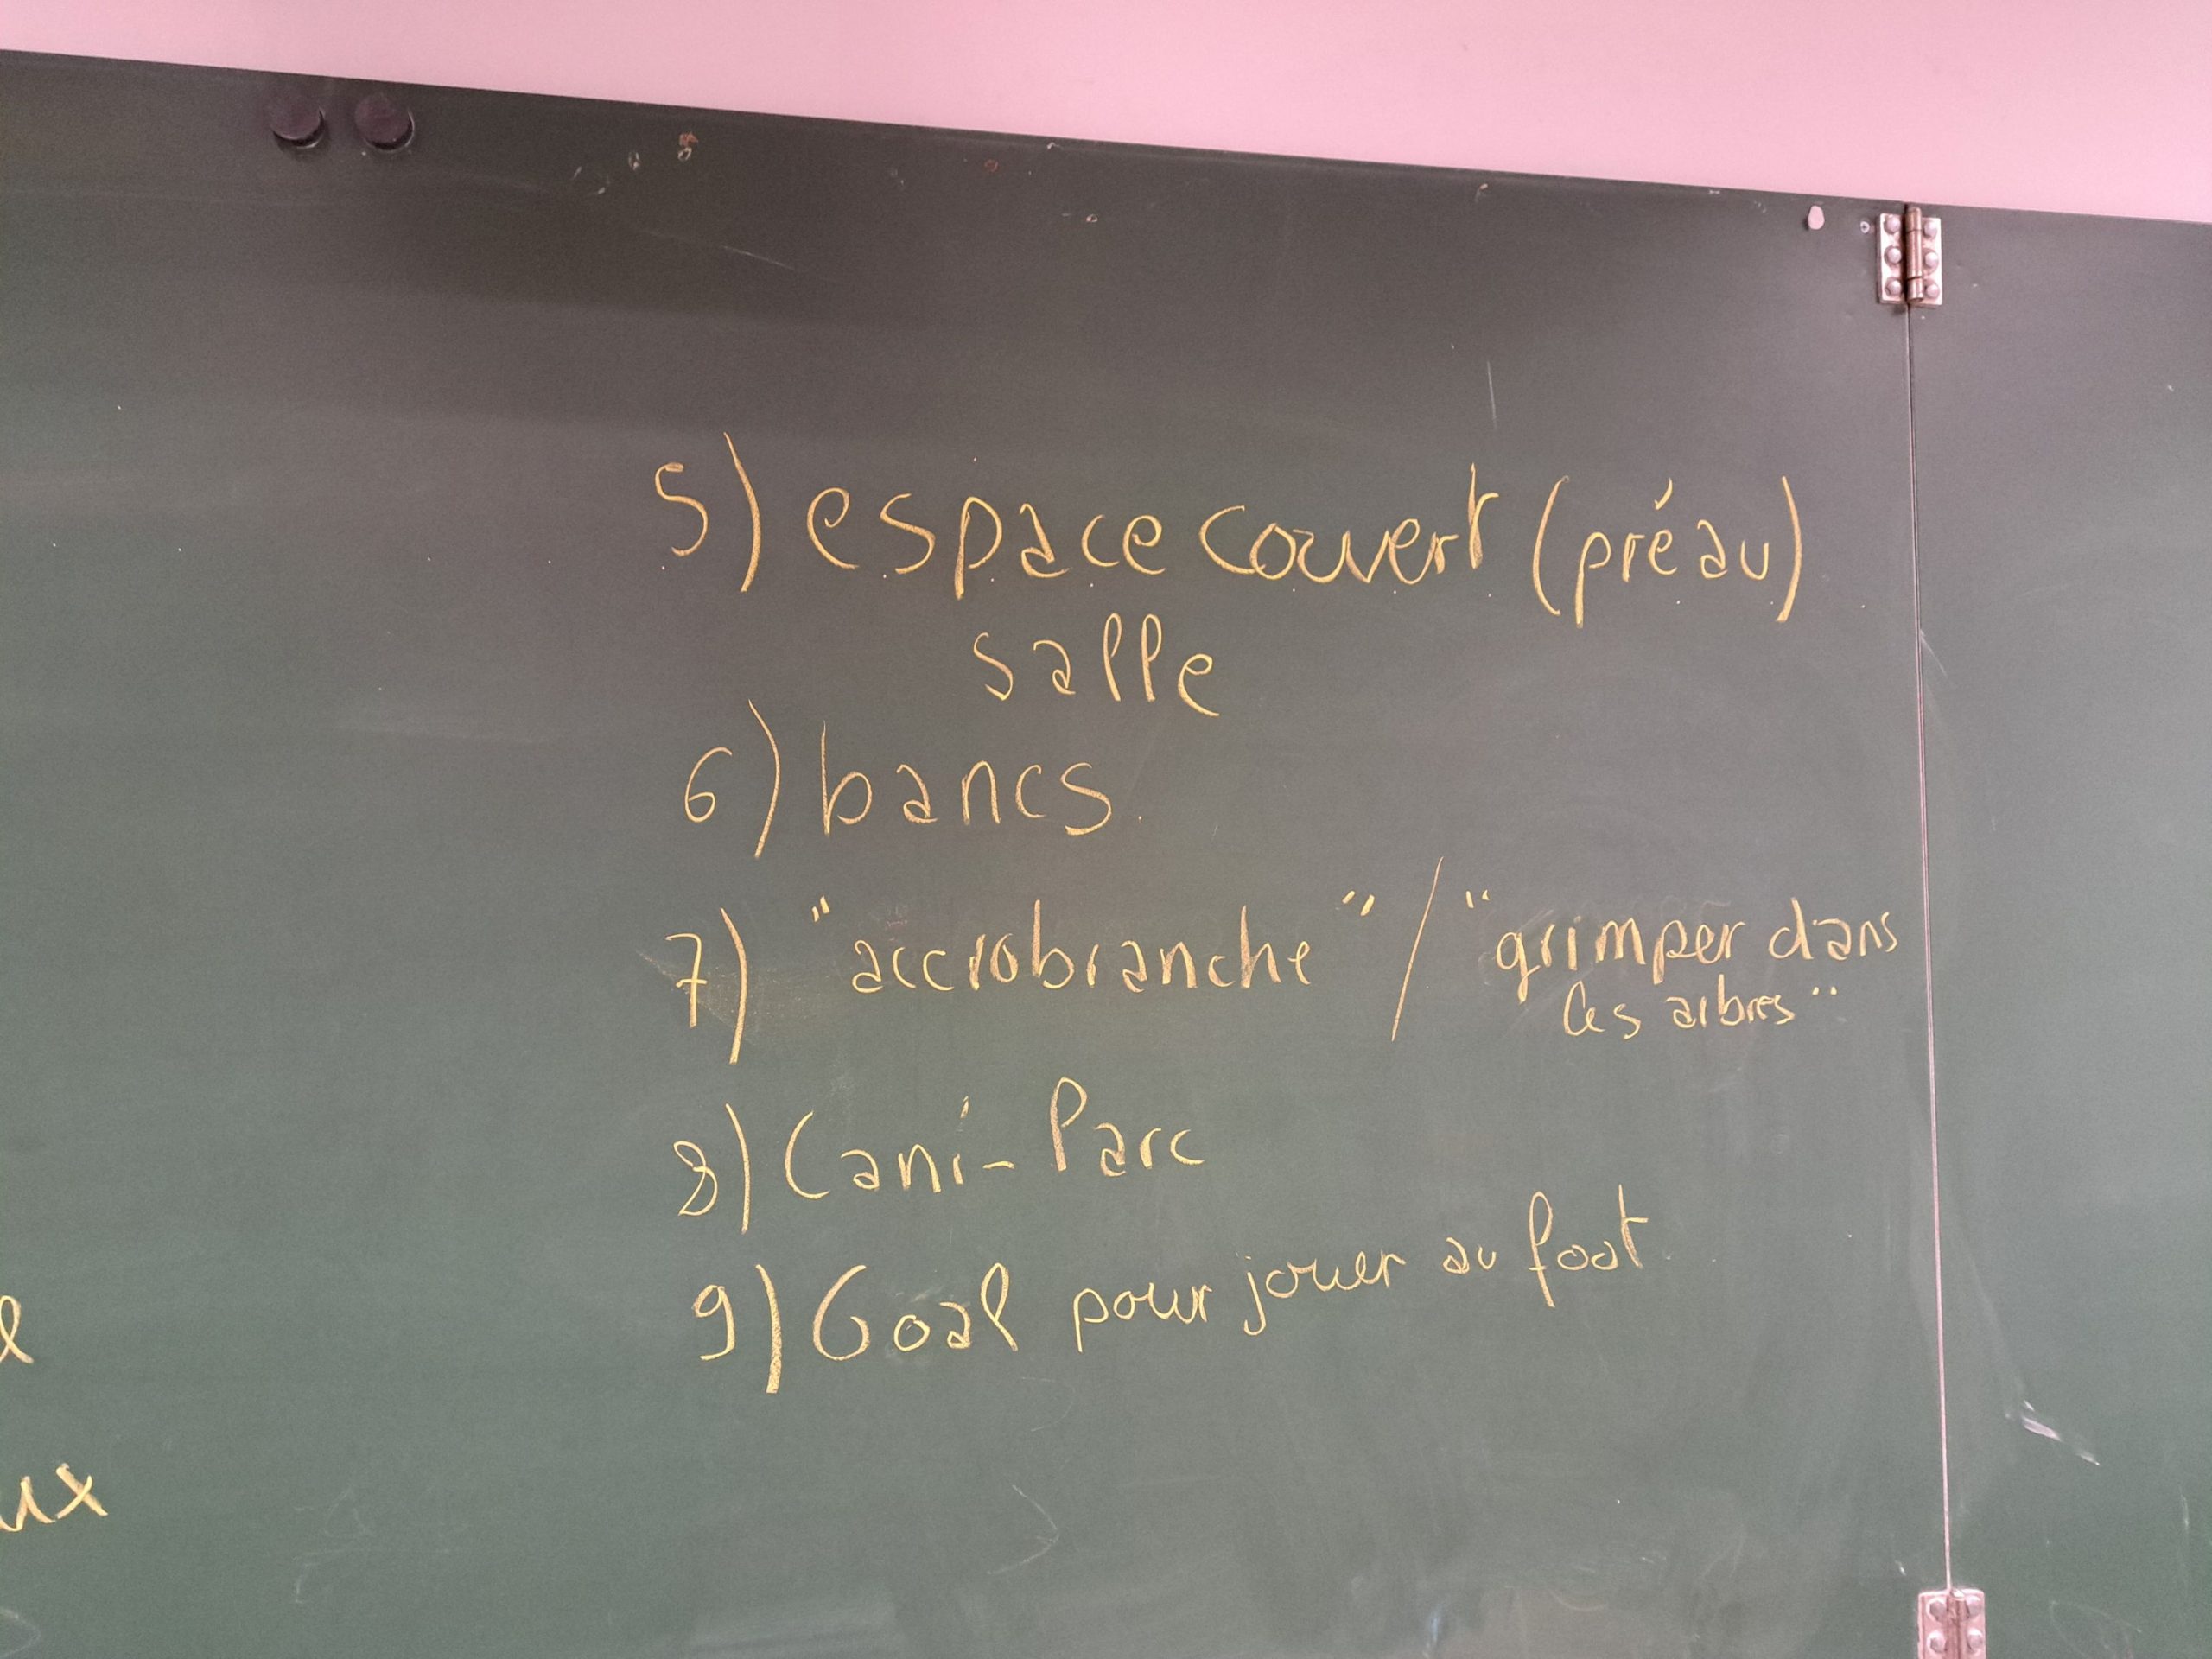 5) espace couvert (préau)
salle
6) bancs
7) "accrobranche" / "grimper dans
les arbres"
8) Cani-Parc
9) Goal pour jouer au foot
ux